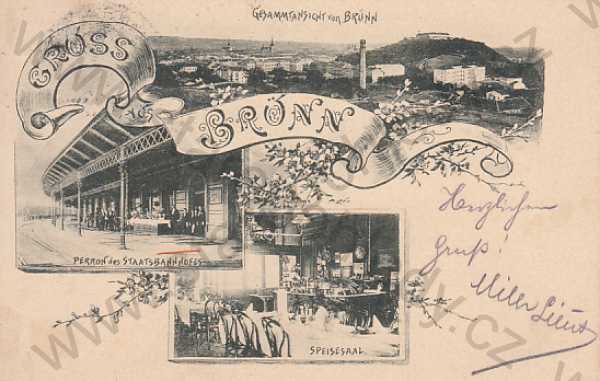 GESAMMTANSICHT VON BRÜNN
GRUSS
AUS
BRÜNN
PERRON des STAATSBAHNHOFES
SPEISESAAL
Herzlichen
Gruß!